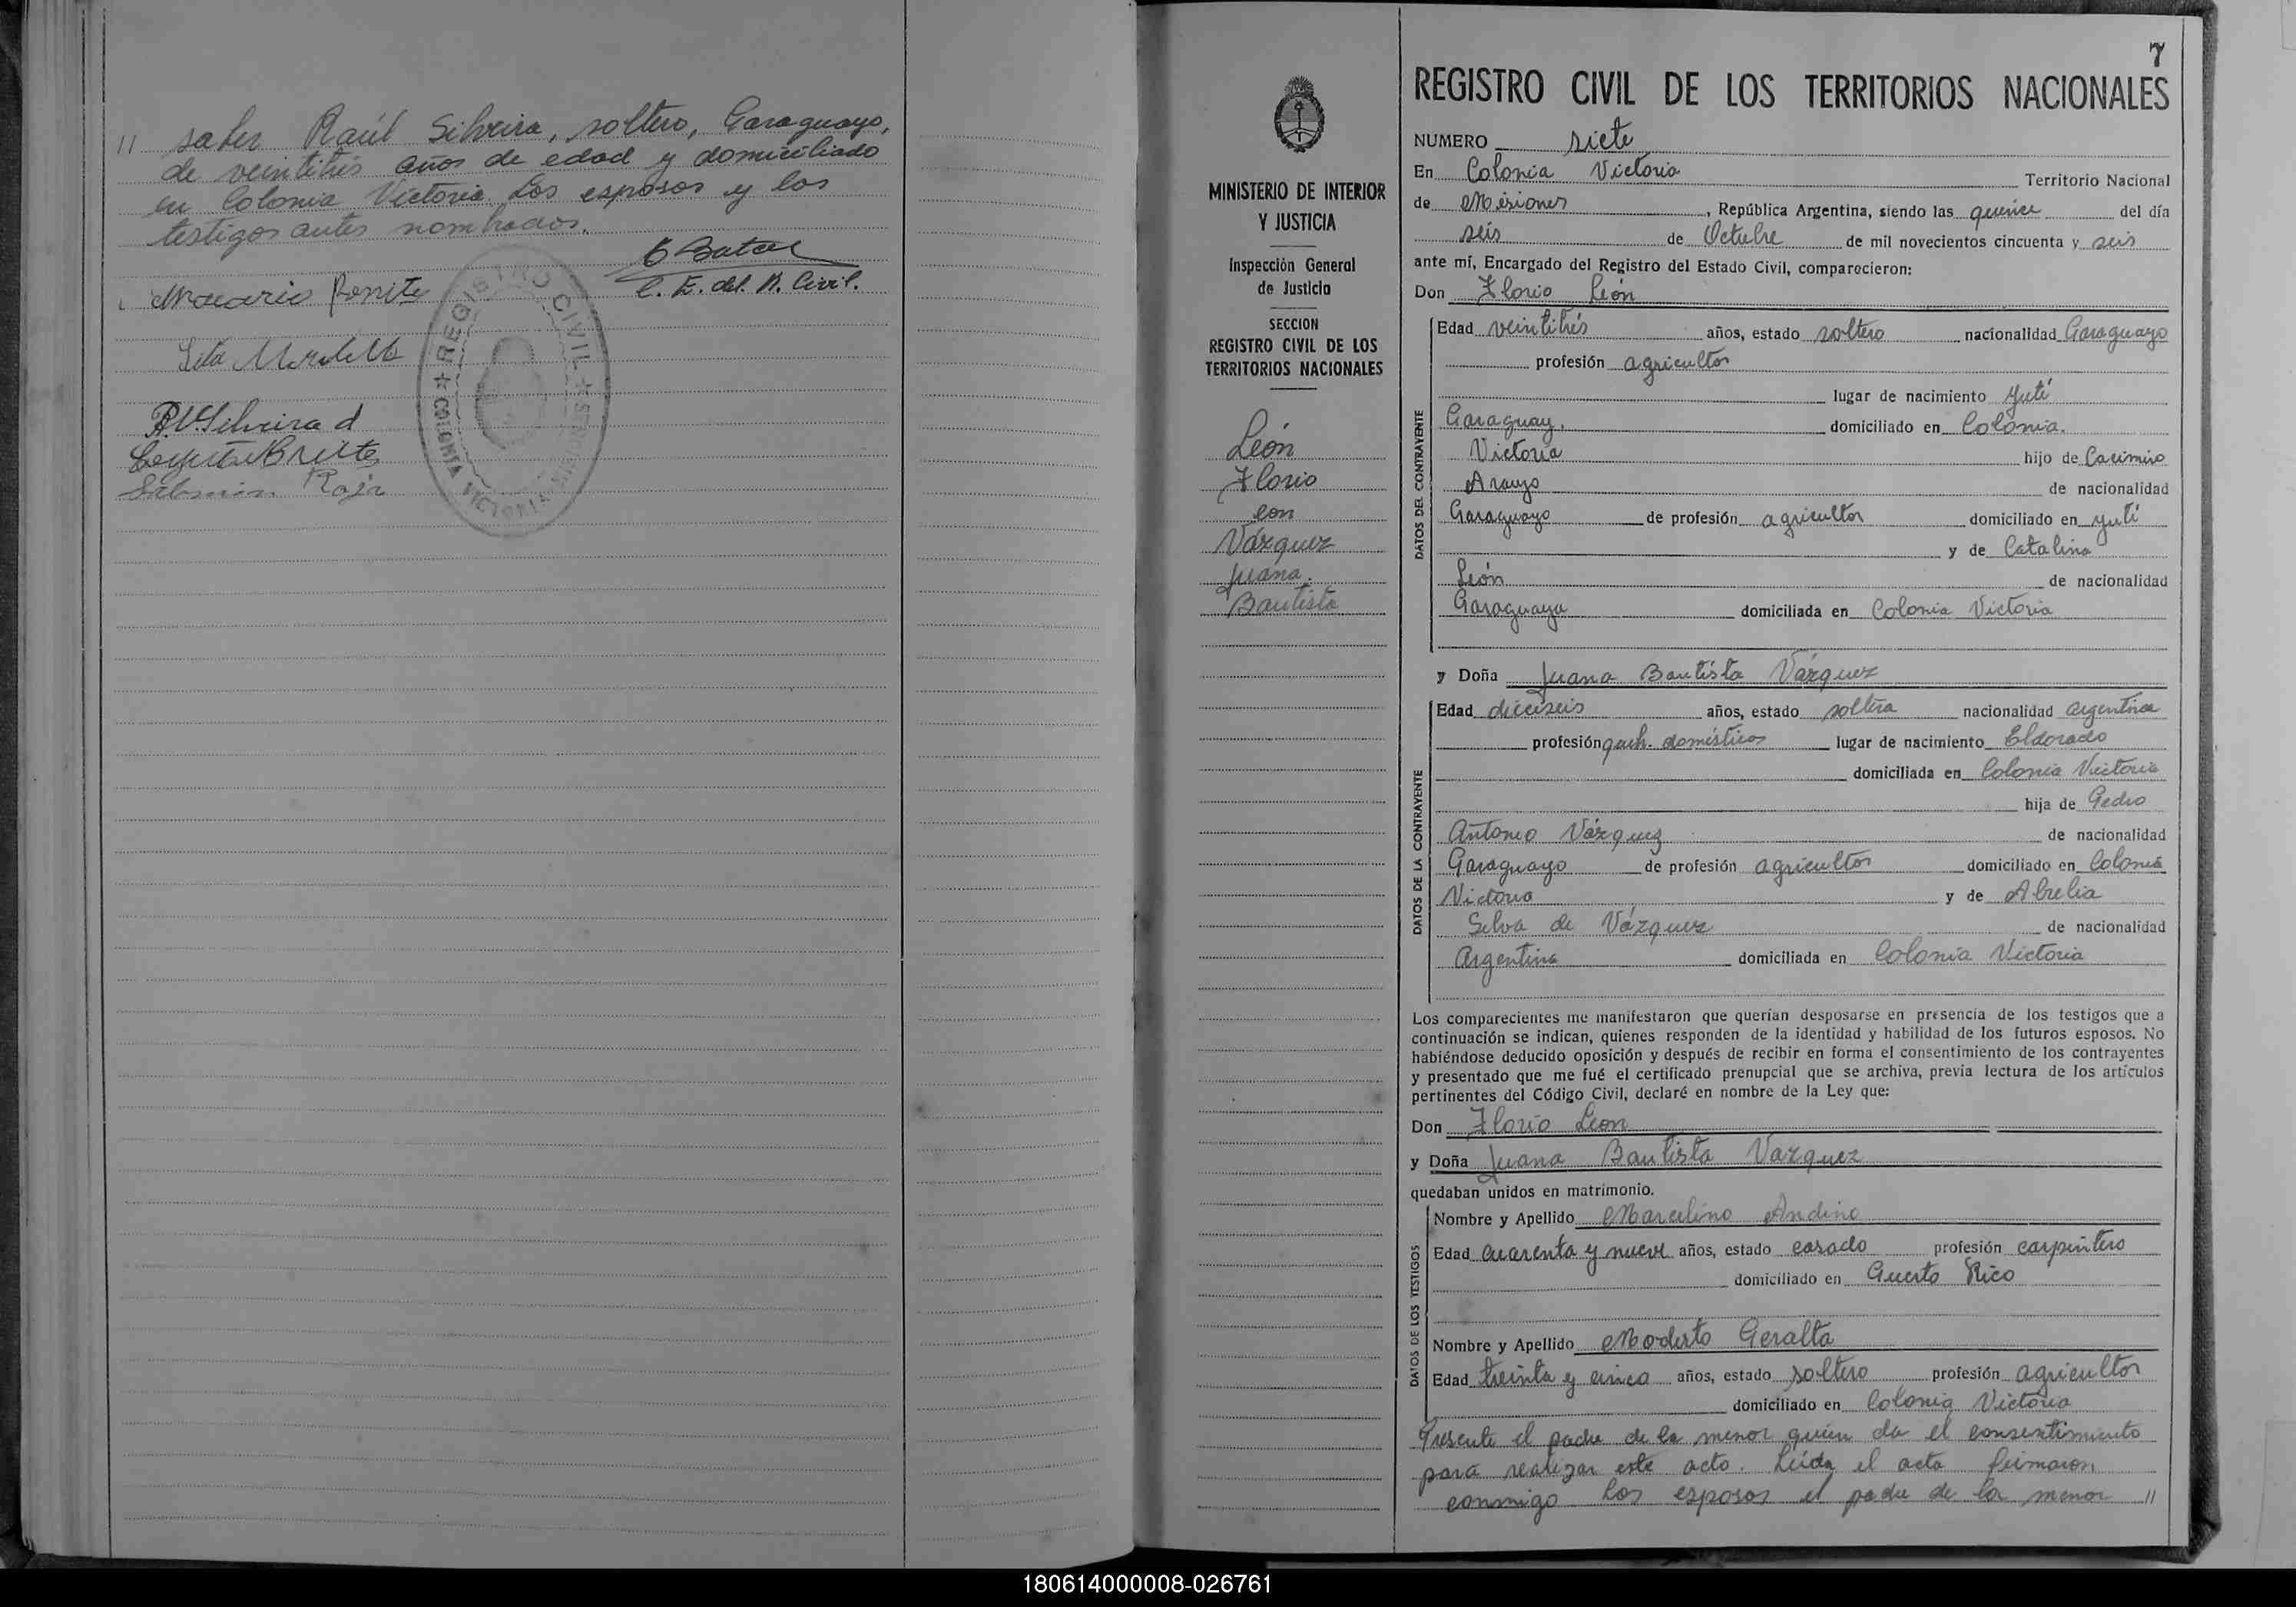 // saber Raúl Silveira, soltero, Paraguayo,
de veintitrés años de edad y domiciliado
en Colonia Victoria. Los esposos y los
testigos antes nombrados.
C. E. del R. Civil.
REGISTRO CIVIL
COLONIA VICTORIA
7
REGISTRO CIVIL DE LOS TERRITORIOS NACIONALES
MINISTERIO DE INTERIOR
Y JUSTICIA
Inspección General
de Justicia
SECCION
REGISTRO CIVIL DE LOS
TERRITORIOS NACIONALES
León
Florio
con
Vázquez
Juana
Bautista
NUMERO siete
En Colonia Victoria Territorio Nacional
de Misiones, República Argentina, siendo las quince del día
seis de Octubre de mil novecientos cincuenta y seis
ante mí, Encargado del Registro del Estado Civil, comparecieron:
Don Florio León
DATOS DEL CONTRAYENTE
Edad veintitrés años, estado soltero nacionalidad Paraguayo
profesión agricultor
lugar de nacimiento Yutí
Paraguay, domiciliado en Colonia
Victoria hijo de Casimiro
Araujo de nacionalidad
Paraguayo de profesión agricultor domiciliado en Yutí
y de Catalina
León de nacionalidad
Paraguaya domiciliada en Colonia Victoria
y Doña Juana Bautista Vázquez
DATOS DE LA CONTRAYENTE
Edad dieciseis años, estado soltera nacionalidad argentina
profesión queh. domésticos lugar de nacimiento Eldorado
domiciliada en Colonia Victoria
hija de Pedro
Antonio Vázquez de nacionalidad
Paraguayo de profesión agricultor domiciliado en Colonia
Victoria y de Abrelia
Silva de Vázquez de nacionalidad
Argentina domiciliada en Colonia Victoria
Los comparecientes me manifestaron que querían desposarse en presencia de los testigos que a
continuación se indican, quienes responden de la identidad y habilidad de los futuros esposos. No
habiéndose deducido oposición y después de recibir en forma el consentimiento de los contrayentes
y presentado que me fué el certificado prenupcial que se archiva, previa lectura de los artículos
pertinentes del Código Civil, declaré en nombre de la Ley que:
Don Florio Leon
y Doña Juana Bautista Vazquez
quedaban unidos en matrimonio.
DATOS DE LOS TESTIGOS
Nombre y Apellido Marcelino Andino
Edad cuarenta y nueve años, estado casado profesión carpintero
domiciliado en Puerto Rico
Nombre y Apellido Modesto Peralta
Edad treinta y cinco años, estado soltero profesión agricultor
domiciliado en Colonia Victoria
Presente el padre de la menor quien da el consentimiento
para realizar este acto. Leída el acta firmaron
conmigo los esposos el padre de la menor //
180614000008-026761